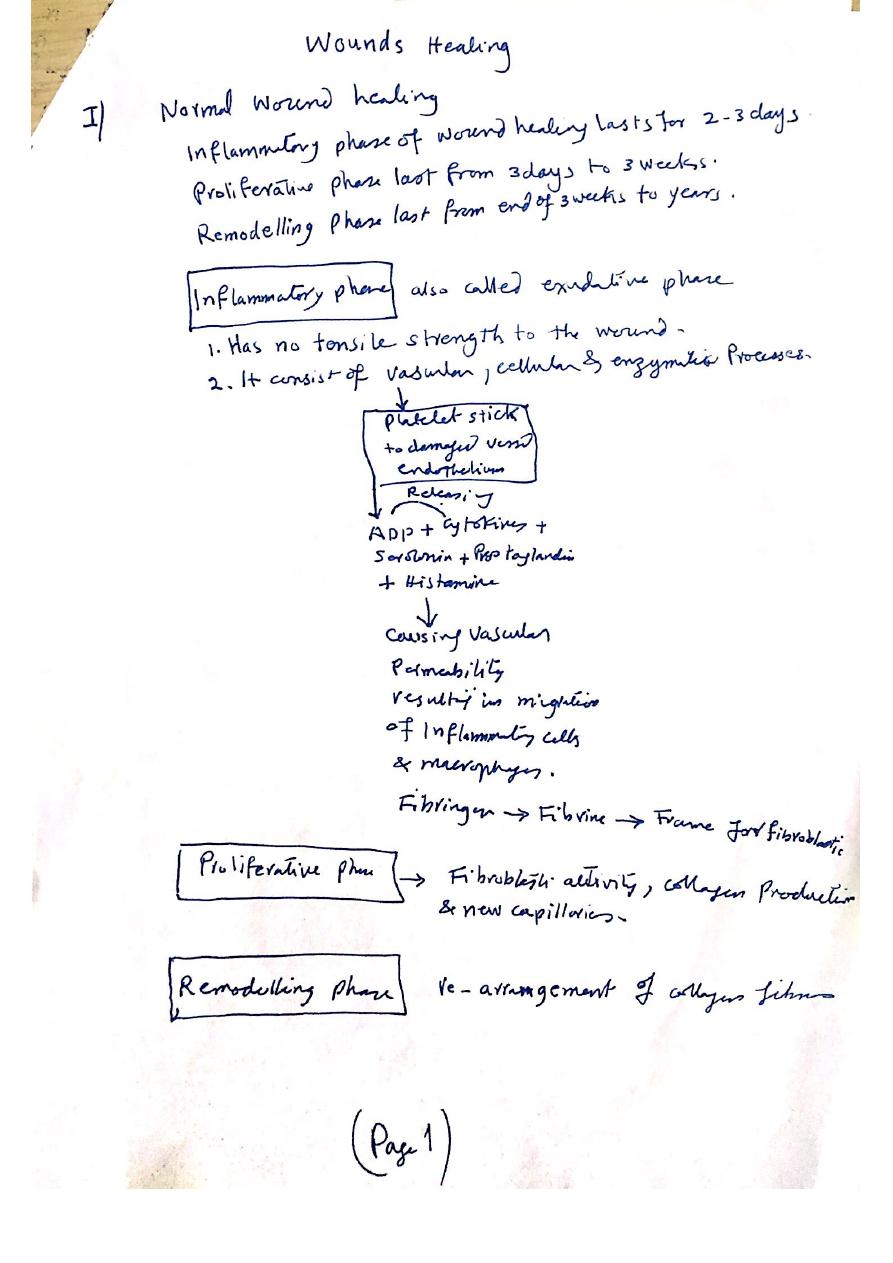 Wounds Healing
I) Normal Wound healing
Inflammatory phase of wound healing lasts for 2-3 days.
Proliferative phase last from 3 days to 3 weeks.
Remodelling Phase last from end of 3 weeks to years.
Inflammatory phase also called exudative phase
1. Has no tensile strength to the wound.
2. It consist of vascular, cellular & enzymatic Processes.
↓
Platelet stick
to damaged vessel
endothelium
Releasing
ADP + Cytokines +
Serotonin + Prostaglandin
+ Histamine
↓
Causing Vascular
Permeability
resulting in migration
of Inflammatory cells
& macrophages.
Fibringen → Fibrine → Frame for fibroblastic
Proliferative phase → Fibroblastic activity, collagen Production
& new capillaries.
Remodelling phase re-arrangement of collagen fibres
(Page 1)